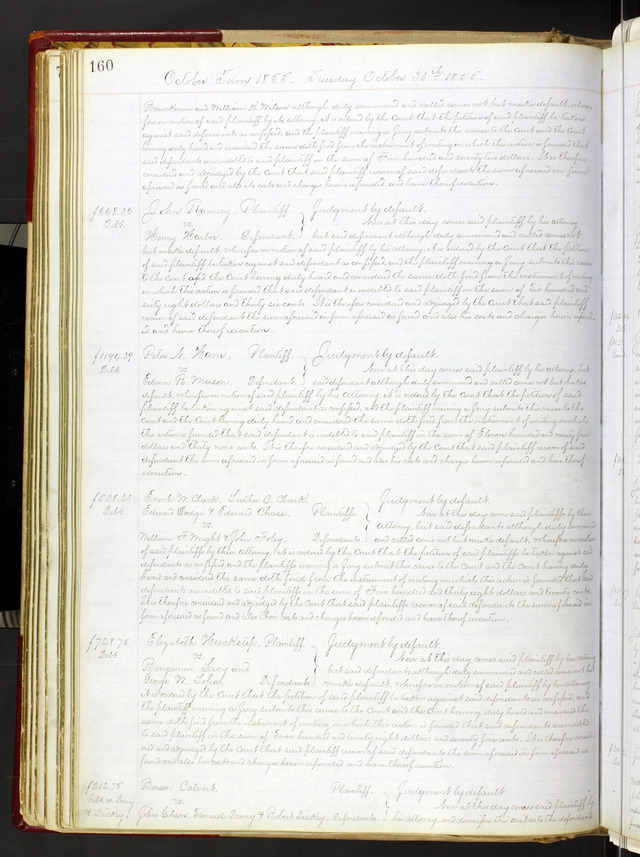 160
October Term 1855. Tuesday October 30th 1855.
and William H. Wilson although duly summoned and called comes not but makes default, wherefore
on motion of said plaintiff by its attorney, it is ordered by the Court that the petition of said plaintiff be taken
against said defendants as confessed, and the plaintiff waiving a Jury submits the cause to the Court and the Court
having duly heard and considered the same doth find from the instrument of writing on which this action is founded that
said defendants are indebted to said plaintiff in the sum of Five hundred and twenty two dollars. It is therefore
considered and adjudged by the Court that said plaintiff recover of said defendants the sum aforesaid in form
aforesaid as found and also its costs and charges herein expended and have thereof execution.
$668.36 John Ramsey, Plaintiff } Judgment by default.
Debt. vs. Now at this day comes said plaintiff by his attorney
Henry Defendant. but said defendant although duly summoned and called comes not
but makes default, wherefore on motion of said plaintiff by his attorney, it is ordered by the Court that the petition
of said plaintiff be taken against said defendant as confessed, and the plaintiff waiving a Jury submits this cause
to the Court and the Court having duly heard and considered the same doth find from the instrument of writing
on which this action is founded that said defendant is indebted to said plaintiff in the sum of Six hundred and
sixty eight dollars and thirty six cents. It is therefore considered and adjudged by the Court that said plaintiff
recover of said defendant the sum aforesaid in form aforesaid as found and also his costs and charges herein expend-
ed and have thereof execution.
Peter Plaintiff } Judgment by default.
Debt. vs. Now at this day comes said plaintiff by his attorney, but
Edwin R. Mason, Defendant. said defendant although duly summoned and called comes not but makes
default, wherefore on motion of said plaintiff by his attorney, it is ordered by the Court that the petition of said
plaintiff be taken against said defendant as confessed, and the plaintiff waiving a Jury submits the cause to the
Court and the Court having duly heard and considered the same doth find from the instrument of writing on which
this action is founded that said defendant is indebted to said plaintiff in the sum of Eleven hundred and ninety four
dollars and thirty nine cents. It is therefore considered and adjudged by the Court that said plaintiff recover of said
defendant the sum aforesaid in form aforesaid as found and also his costs and charges herein expended and have thereof
execution.
$538.20 Enoch W. Clark, Luther C. Clark, Judgment by default.
Debt. Edward Dodge & Edward Chase, Plaintiffs } Now at this day come said plaintiffs by their
vs. attorney, but said defendants although duly summoned
William F. Wright & John Foley, Defendants. and called come not but make default, wherefore on motion
of said plaintiffs by their attorney, it is ordered by the Court that the petition of said plaintiffs be taken against said
defendants as confessed, and the plaintiffs waiving a Jury submit this cause to the Court and the Court having duly
heard and considered the same doth find from the instrument of writing on which this action is founded that said
defendants are indebted to said plaintiffs in the sum of Five hundred and thirty eight dollars and twenty cents.
It is therefore considered and adjudged by the Court that said plaintiffs recover of said defendants the sum aforesaid in
form aforesaid as found and also their costs and charges herein expended and have thereof execution.
$728.75 Elizabeth Plaintiff. } Judgment by default.
Debt vs. Now at this day comes said plaintiff by her attorney
Benjamin Lacy and but said defendants although duly summoned and called comes not but
George W. Defendants make default, wherefore on motion of said plaintiff by her attorney
it is ordered by the Court that the petition of said plaintiff be taken against said defendants as confessed, and
the plaintiff waiving a Jury submits the cause to the Court and the Court having duly heard and considered the
same doth find from the instrument of writing on which this action is founded that said defendants are indebted
to said plaintiff in the sum of Seven hundred and twenty eight dollars and seventy five cents. It is therefore consider-
ed and adjudged by the Court that said plaintiff recover of said defendants the sum aforesaid in form aforesaid as
found and also her costs and charges herein expended and have thereof execution.
$212.75 Benson Calvert. Plaintiff. } Judgment by default.
Debt vs. Now at this day comes said plaintiff by
& Dickey. John Gibson, Samuel Denny & Robert Dickey, Defendants. his attorney, and dismisses this suit as to the defendant